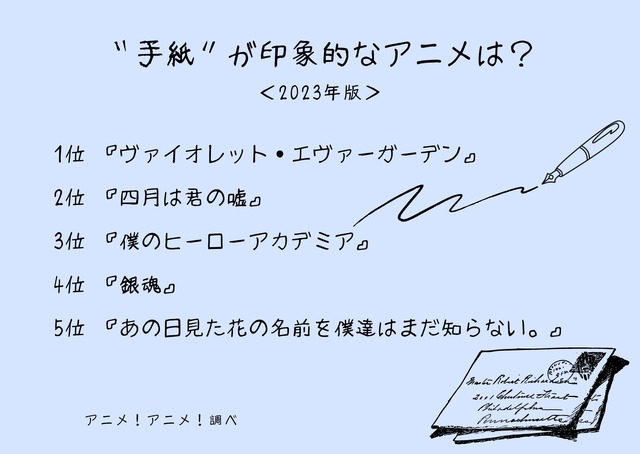 〝手紙〟が印象的なアニメは？
＜2023年版＞
1位 『ヴァイオレット・エヴァーガーデン』
2位 『四月は君の嘘』
3位 『僕のヒーローアカデミア』
4位 『銀魂』
5位 『あの日見た花の名前を僕達はまだ知らない。』
アニメ！アニメ！調べ
2001
Philadelphia